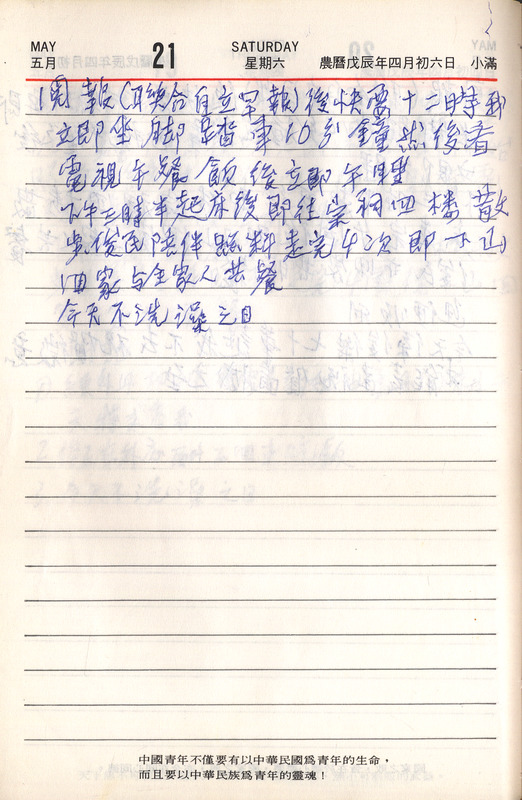 MAY 21 SATURDAY
五月 星期六 農曆戊辰年四月初六日 小滿
1閱報(聯合自立早報)後快要十二時我
立即坐腳踏車10分鐘然後看
電視午餐飯後立即午睡
下午三時半起床後即往宗祠四樓散
步俊民陪伴照料走完4次即下山
回家与全家人共餐
今天不洗澡之日
中國青年不僅要有以中華民國爲青年的生命,
而且要以中華民族爲青年的靈魂!